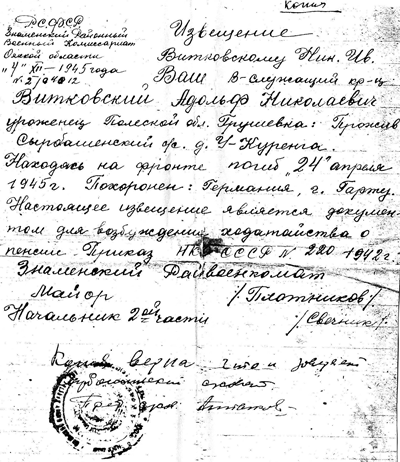 Копия
РСФСР
Знаменский Районный
Военный Комиссариат
Омской области
"4" XII – 1945 года
Извещение
Витковскому Ник. Ив.
Ваш в-служащий кр-ц
Витковский Адольф Николаевич
уроженец Полесской обл. Грушевка: Прожив
Сырбашенский с/с. д. У-Куренга.
Находясь на фронте погиб "24" апреля
1945г. Похоронен: Германия, г. Гарту.
Настоящее извещение является докумен-
том для возбуждения ходатайства о
пенсии. Приказ НКО СССР № 220 1942г.
Знаменский Райвоенкомат
Майор /Плотников/.
Начальник 2ой части /Свечник/.
Копия верна